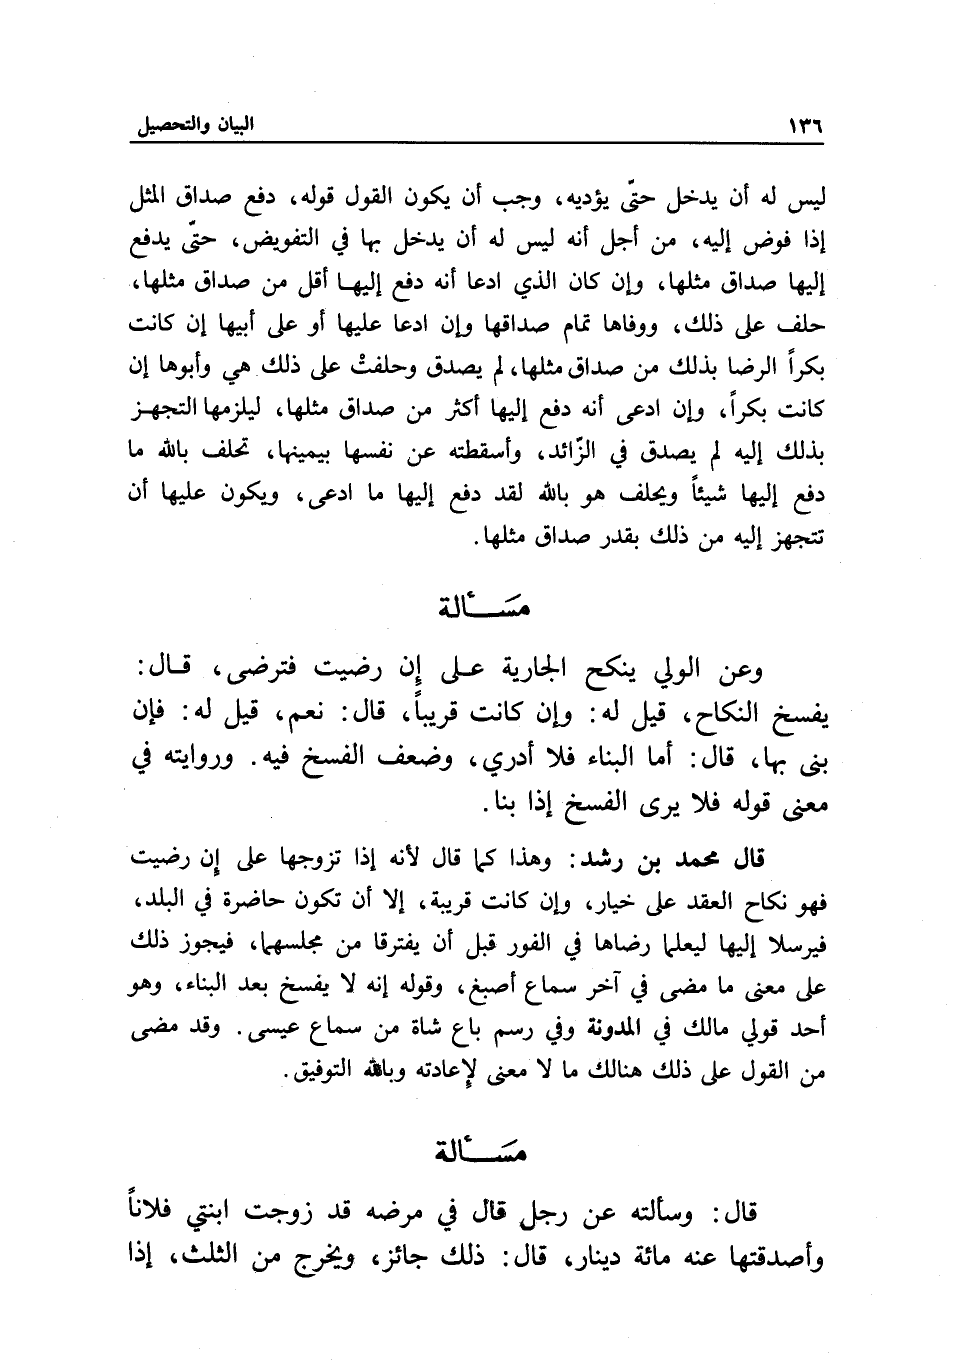 ١٣٦ البيان والتحصيل
ليس له أن يدخل حتّى يؤديه، وجب أن يكون القول قوله، دفع صداق المثل
إذا فوض إليه، من أجل أنه ليس له أن يدخل بها في التفويض، حتّى يدفع
إليها صداق مثلها، وإن كان الذي ادعا أنه دفع إليها أقل من صداق مثلها،
حلف على ذلك، ووفاها تمام صداقها وإن ادعا عليها أو على أبيها إن كانت
بكراً الرضا بذلك من صداق مثلها، لم يصدق وحلفتْ على ذلك هي وأبوها إن
كانت بكراً، وإن ادعى أنه دفع إليها أكثر من صداق مثلها، ليلزمها التجهـز
بذلك إليه لم يصدق في الزّائد، وأسقطته عن نفسها بيمينها، تحلف بالله ما
دفع إليها شيئاً ويحلف هو بالله لقد دفع إليها ما ادعى، ويكون عليها أن
تتجهز إليه من ذلك بقدر صداق مثلها.
مَسَــأَلة
وعن الولي ينكح الجارية عـلى إن رضيت فترضى، قـال:
يفسخ النكاح، قيل له: وإن كانت قريباً، قال: نعم، قيل له: فإن
بنى بها، قال: أما البناء فلا أدري، وضعف الفسخ فيه. وروايته في
معنى قوله فلا يرى الفسخ إذا بنا.
قال محمد بن رشد: وهذا كما قال لأنه إذا تزوجها على إن رضيت
فهو نكاح العقد على خيار، وإن كانت قريبة، إلا أن تكون حاضرة في البلد،
فيرسلا إليها ليعلما رضاها في الفور قبل أن يفترقا من مجلسهما، فيجوز ذلك
على معنى ما مضى في آخر سماع أصبغ، وقوله إنه لا يفسخ بعد البناء، وهو
أحد قولي مالك في المدونة وفي رسم باع شاة من سماع عيسى. وقد مضى
من القول على ذلك هنالك ما لا معنى لإعادته وبالله التوفيق.
مَسَــأَلة
قال: وسألته عن رجل قال في مرضه قد زوجت ابنتي فلاناً
وأصدقتها عنه مائة دينار، قال: ذلك جائز، ويخرج من الثلث، إذا